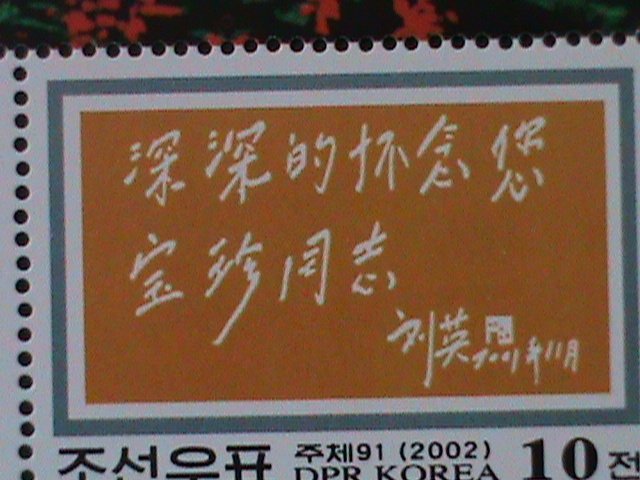 深深的怀念您
宝珍同志
刘英 2001年11月
조선우표 주체91 (2002) 10전
DPR KOREA